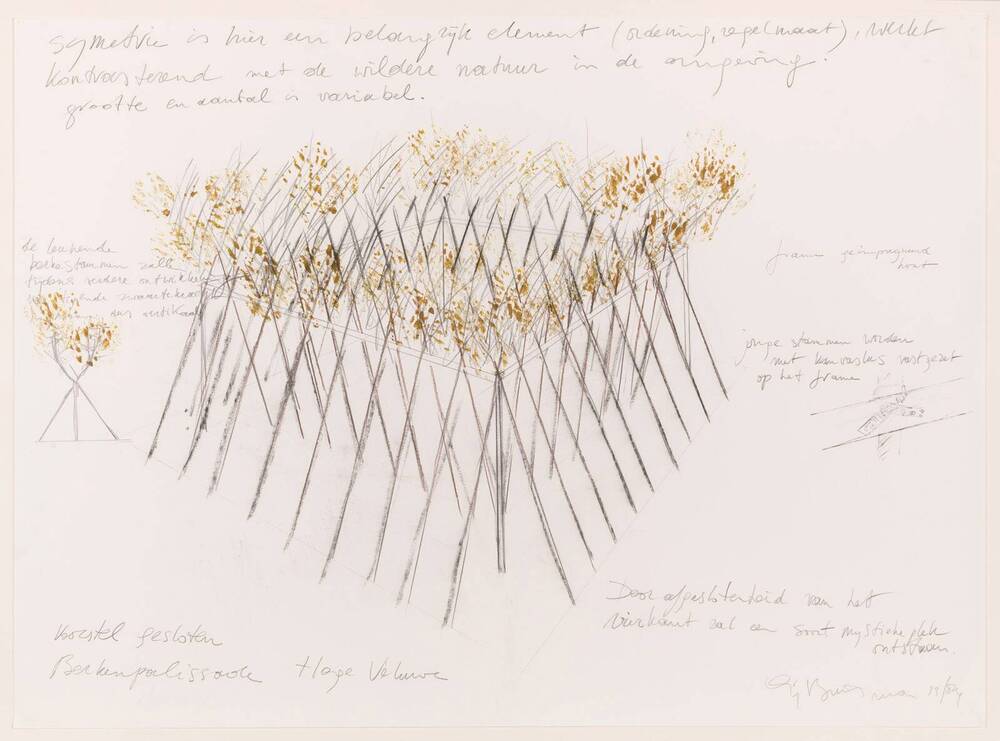 symetrie is hier een belangrijk element (ordening, regelmaat), werkt
kontrasterend met de wildere natuur in de omgeving.
grootte en aantal is variabel.
de leunende
berkestammen zullen
tijdens verdere ontwikkeling
zwaartekracht
dus vertikaal
frame geimpregneerd
hout
jonge stammen worden
met kanvaslus vastgezet
op het frame
Door afgeslotenheid van het
vierkant zal een soort mystieke plek
ontstaan.
Voorstel gesloten
Berkenpalissade Hoge Veluwe